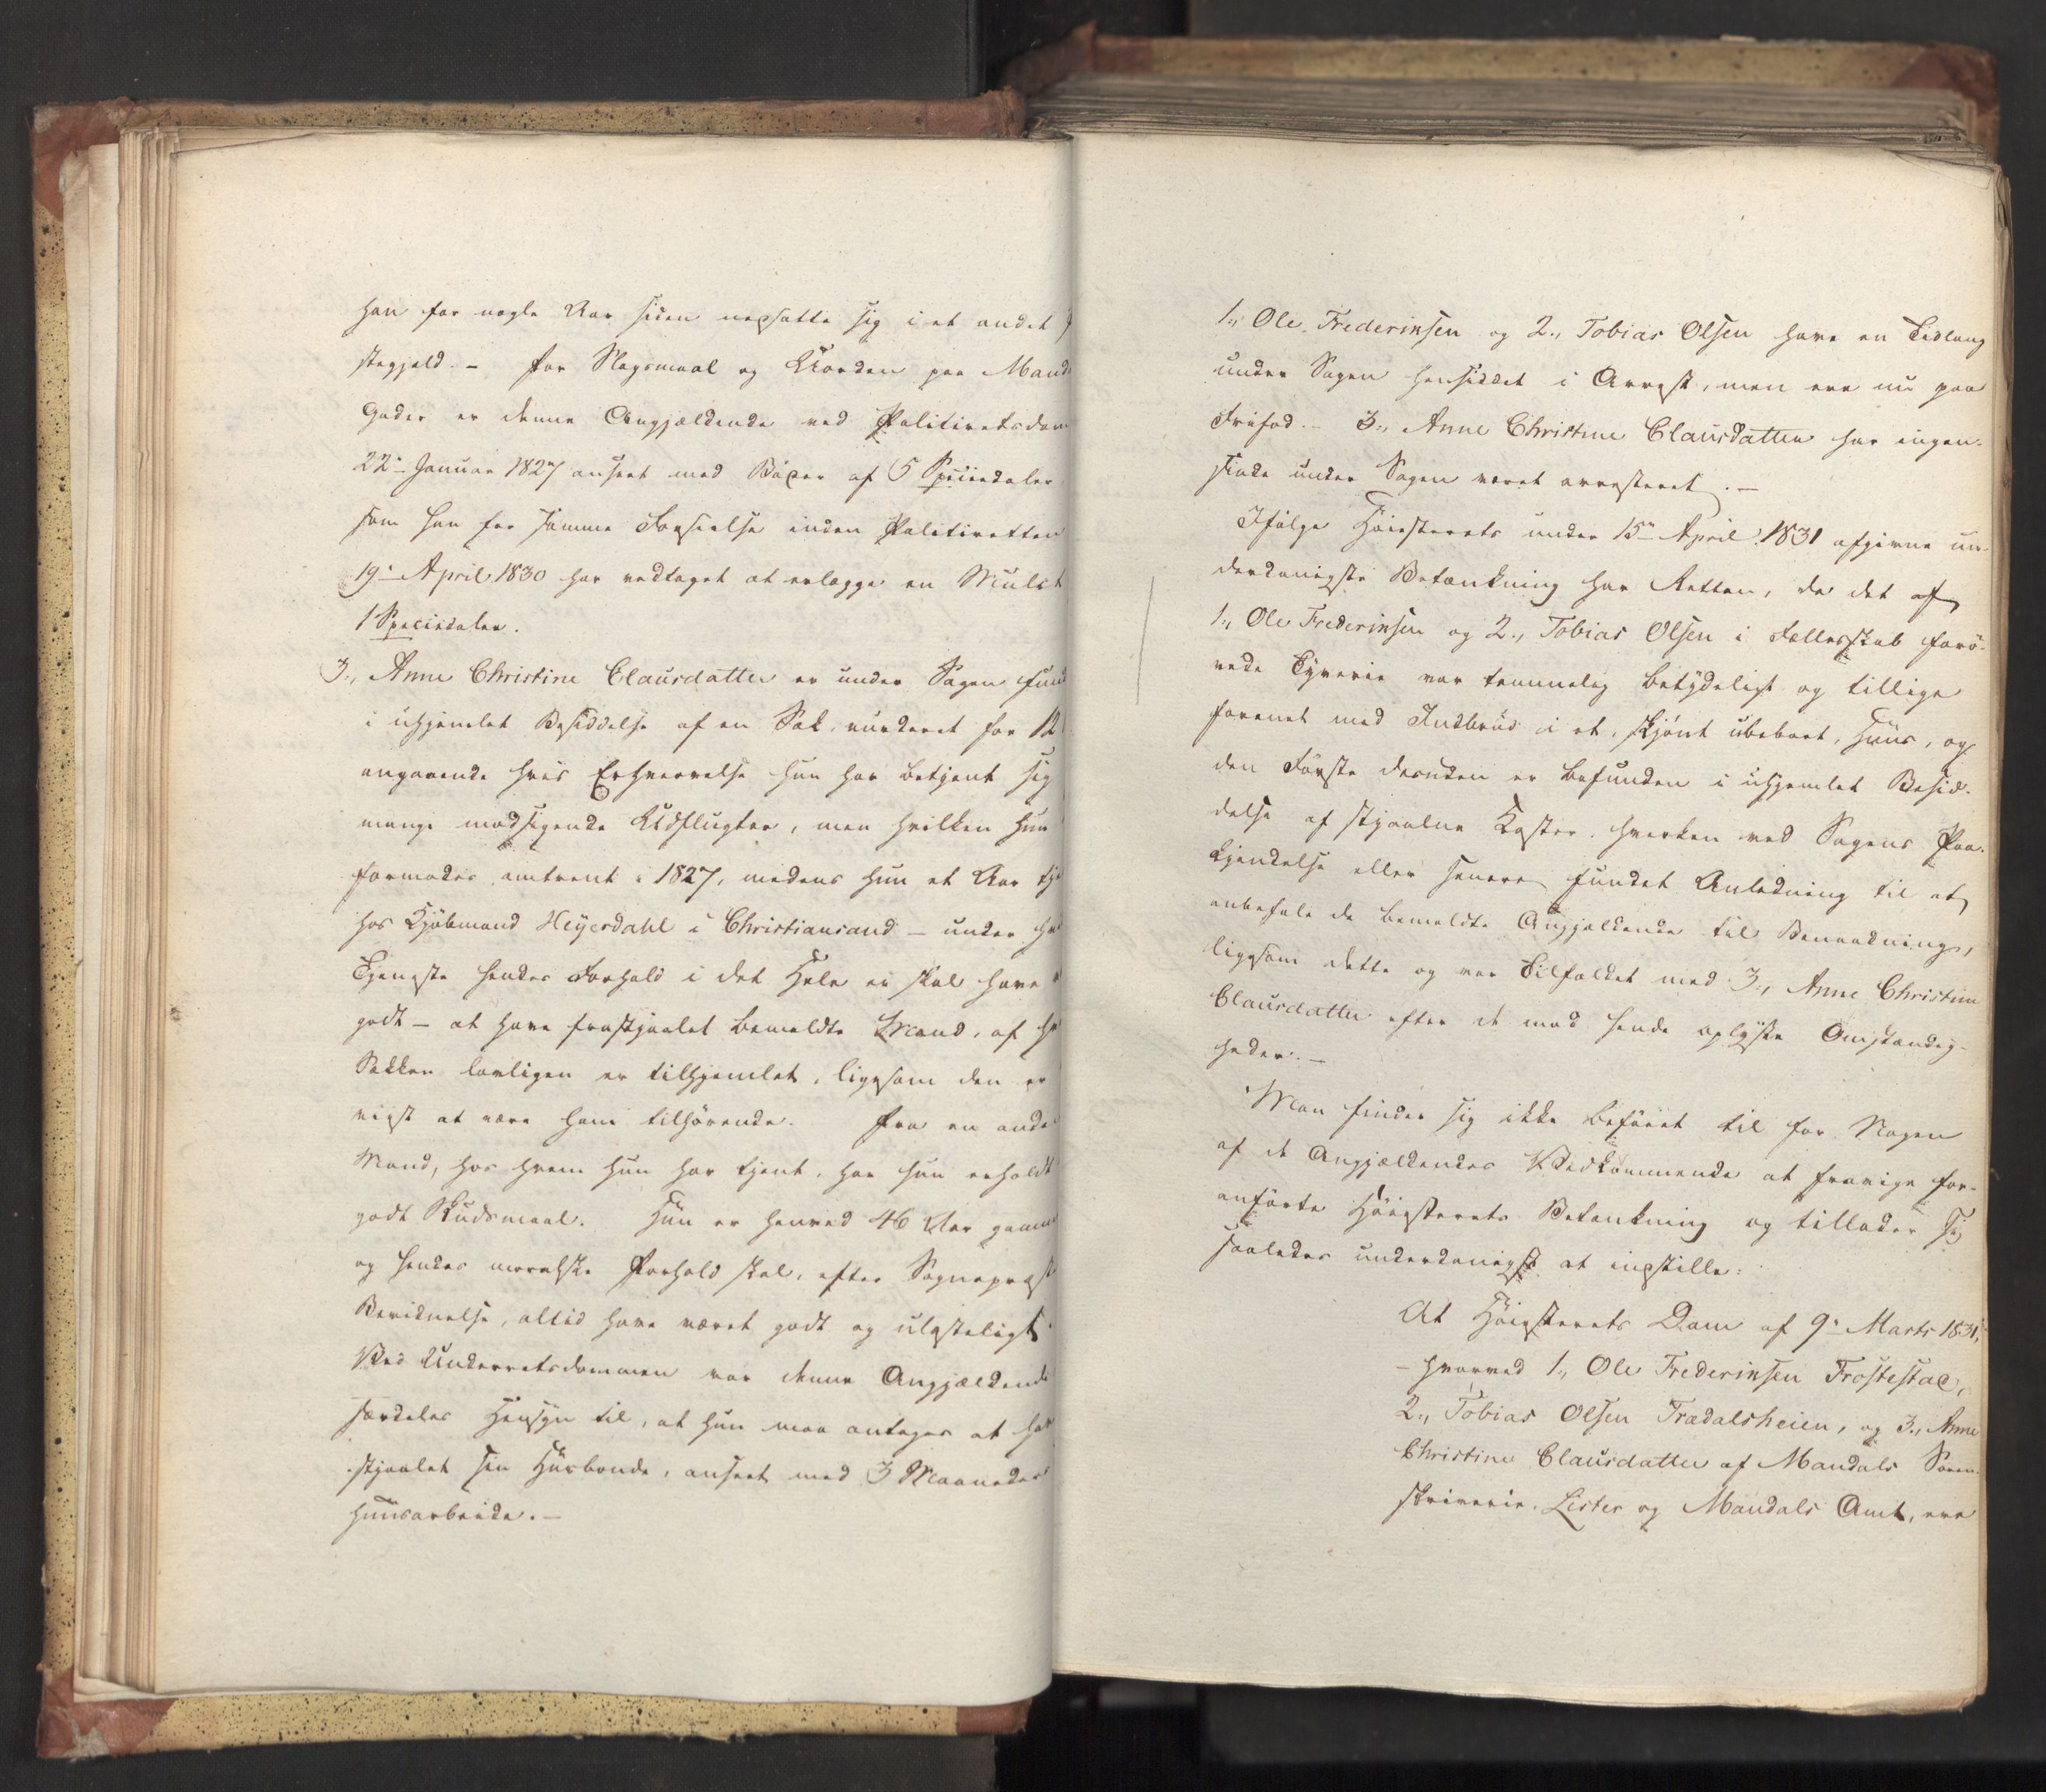 han for nogle Aar siden nedsatte sig i et andet
stegjeld. – For Slagsmaal og Uorden paa Mand
Gader er denne Angjældende ved Politiretsdom
22de Januar 1827 anseet med Bøder af 5 Speciedaler
som han for samme Forseelse inden Politiretten
19de April 1830 har vedtaget at erlægge en Mulct
1 Speciedaler.
3., Anne Christine Clausdatter er under Sagen fund
i uhjemlet Besiddelse af en Sæk, vurderet for 12
angaaende hvis Erhvervelse hun har betjent sig
mange modsigende Udflugter, men hvilken hun
formodes omtrent i 1827, medens hun et Aar tje
hos Kjøbmand Heyerdahl i Christiansand – under hv
Tjeneste hendes Forhold i det Hele ei skal have
godt – at have frastjaalet bemeldte Mand, af hv
Sækken lovligen er tilhjemlet, ligesom den er
viist at være ham tilhørende. Fra en anden
Mand, hos hvem hun har tjent, har hun erholdt
godt Skudsmaal. Hun er henved 46 Aar gamm
og hendes moralske Forhold skal, efter Sognepræst
Bevidnelse, altid have været godt og ulasteligt.
Ved Underretsdommen var denne Angjældende
særdeles Hensyn til, at hun maa antages at hav
stjaalet sin Huusbonde, anseet med 3 Maaneders
Huusarbeide. –
1., Ole Frederiksen og 2., Tobias Olsen have en Tidlang
under Sagen hensiddet i Arrest, men ere nu paa
Frifod. – 3., Anne Christine Clausdatter har ingen-
sinde under Sagen været arresteret. –
Ifølge Høiesterets under 15de April 1831 afgivne un-
derdanigste Betænkning har Retten, da det af
1., Ole Frederiksen og 2., Tobias Olsen i Fællesskab forø-
vede Tyverie var temmelig betydeligt og tillige
forenet med Indbrud i et, skjønt ubeboet, Huus, og
den Første desuden er befunden i uhjemlet Besid-
delse af stjaalne Koster, hverken ved Sagens Paa-
kjendelse eller senere fundet Anledning til at
anbefale de bemeldte Angjældende til Benaadning,
ligesom dette og var Tilfældet med 3., Anne Christine
Clausdatter efter de mod hende oplyste Omstændig-
heder. –
Man finder sig ikke beføiet til for Nogen
af de Angjældendes Vedkommende at fravige for-
anførte Høiesterets Betænkning og tillader sig
saaledes underdanigst at indstille:
At Høiesterets Dom af 9de Marts 1831,
– hvorved 1., Ole Frederiksen Frøstestad,
2., Tobias Olsen Trædalsheien, og 3., Anne
Christine Clausdatter af Mandals Soren-
skriverie, Lister og Mandals Amt, ere